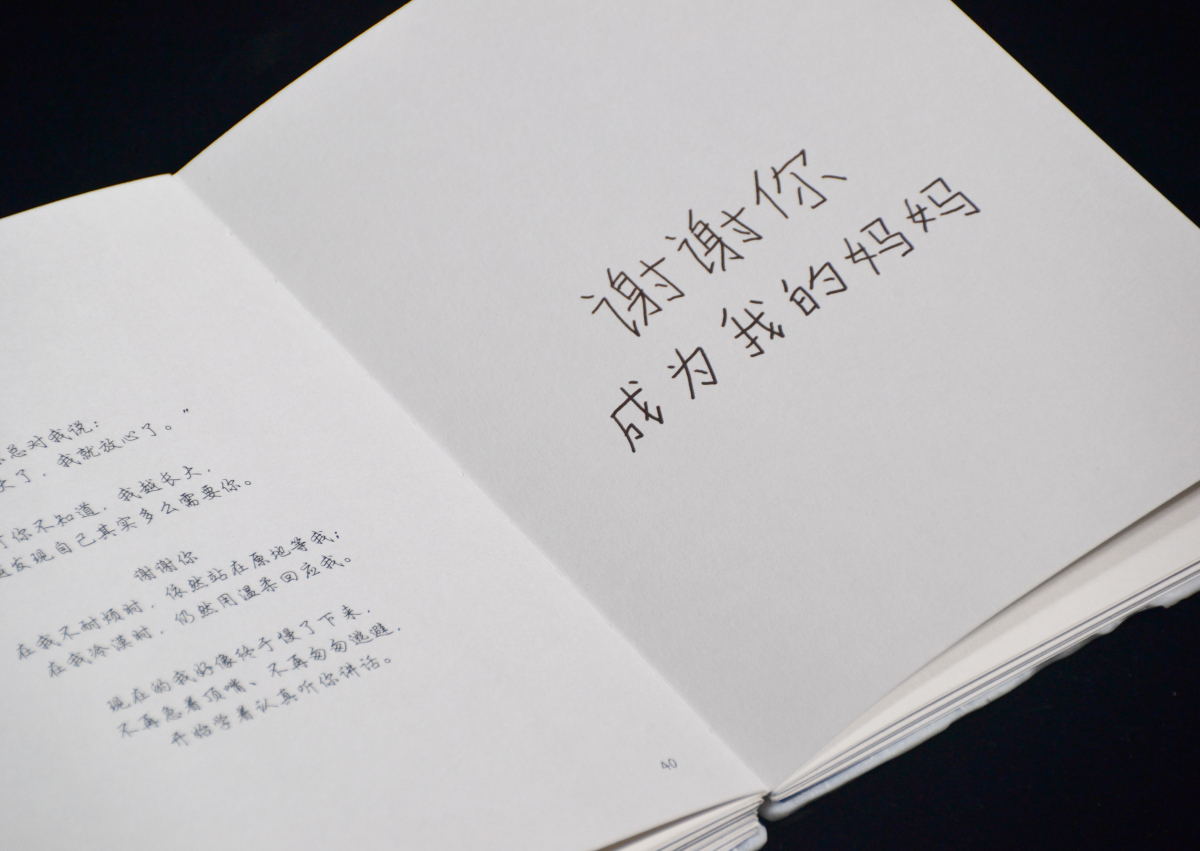 总对我说：
大了，我就放心了。”
你不知道，我越长大，
发现自己其实多么需要你。
谢谢你
在我不耐烦时，依然站在原地等我；
在我冷漠时，仍然用温柔回应我。
现在的我好像终于慢了下来，
不再急着顶嘴、不再匆匆逃避，
开始学着认真听你讲话。
40
谢谢你
成为我的妈妈